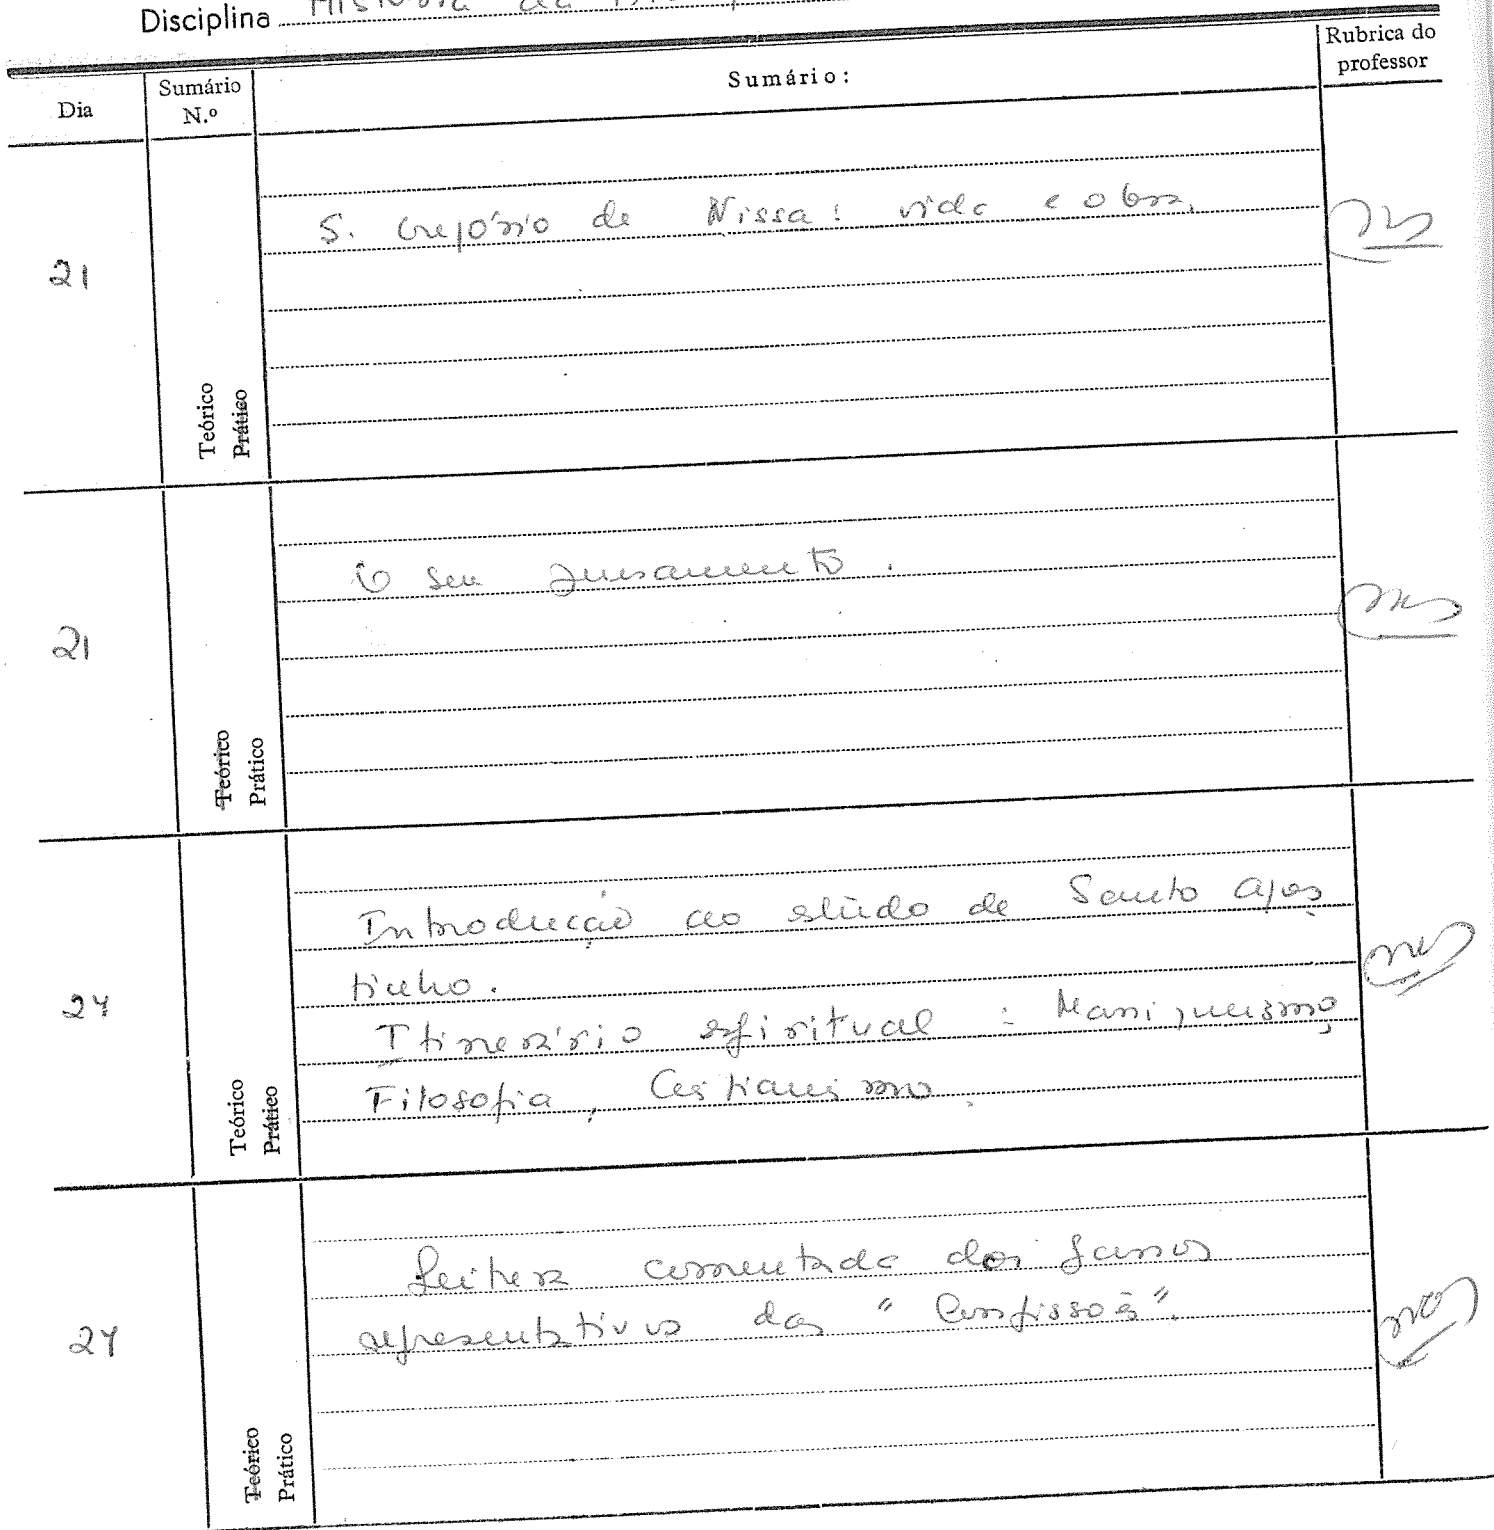 Disciplina História da
Dia
Sumário N.º
Sumário:
Rubrica do professor
21
Teórico
Prático
S. Gregório de Nissa: vida e obra.
21
Teórico
Prático
O seu pensamento.
24
Teórico
Prático
Introdução ao estudo de Santo Agos
tinho.
Itinerário espiritual: Maniqueismo,
Filosofia, Cristianismo.
24
Teórico
Prático
Leitura comentada dos passos
representativos das "Confissões".